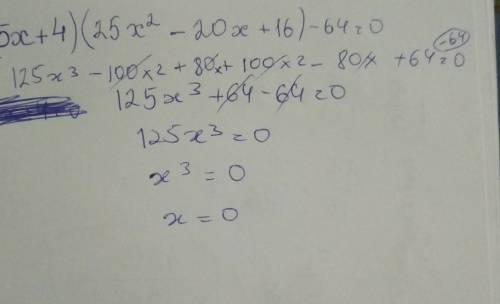 5x+4)(25x² - 20x + 16) - 64 = 0
125x³ - 100x2 + 80x + 100x2 - 80x + 64 -64 = 0
125x³ + 64 - 64 = 0
125x³ = 0
x³ = 0
x = 0